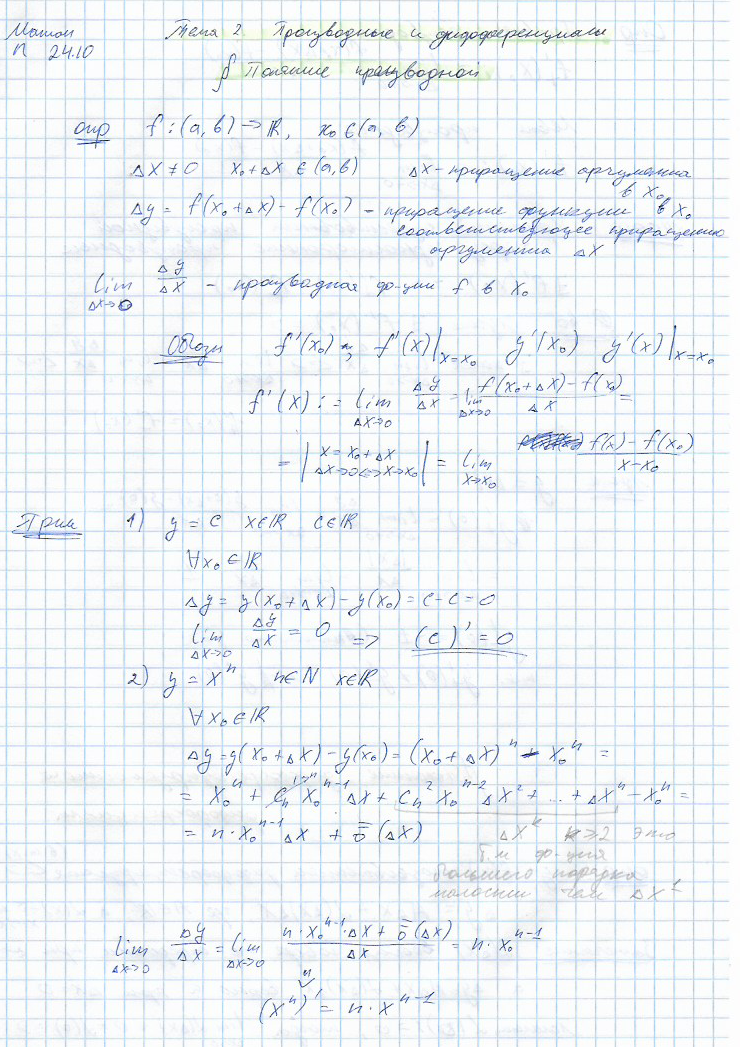 Матан Тема 2 Производные и дифференциалы
П 24.10
§ Понятие производной
опр f : (a, b) → ℝ, x₀ ∈ (a, b)
Δx ≠ 0 x₀ + Δx ∈ (a, b) Δx - приращение аргумента
в x₀
Δy = f(x₀ + Δx) - f(x₀) - приращение функции в x₀
соответствующее приращению
аргумента Δx
lim_{Δx→0} Δy/Δx - производная ф-ции f в x₀
Обозн f'(x₀), f'(x)|_{x=x₀} y'(x₀) y'(x)|_{x=x₀}
f'(x) := lim_{Δx→0} Δy/Δx = lim_{Δx→0} (f(x₀ + Δx) - f(x₀))/Δx =
= |x = x₀ + Δx Δx→0 <=> x→x₀| = lim_{x→x₀} (f(x) - f(x₀))/(x - x₀)
Прим 1) y = c x∈ℝ c∈ℝ
∀x₀ ∈ ℝ
Δy = y(x₀ + Δx) - y(x₀) = c - c = 0
lim_{Δx→0} Δy/Δx = 0 => (c)' = 0
2) y = xⁿ n∈N x∈ℝ
∀x₀ ∈ ℝ
Δy = y(x₀ + Δx) - y(x₀) = (x₀ + Δx)ⁿ - x₀ⁿ =
= x₀ⁿ + C_n¹ x₀ⁿ⁻¹ Δx + C_n² x₀ⁿ⁻² Δx² + ... + Δxⁿ - x₀ⁿ =
= n · x₀ⁿ⁻¹ Δx + ō(Δx) Δxᵏ k ≥ 2 это
б.м ф-ция
большего порядка
малости чем Δx¹
lim_{Δx→0} Δy/Δx = lim_{Δx→0} (n · x₀ⁿ⁻¹ · Δx + ō(Δx))/Δx = n · x₀ⁿ⁻¹
(xⁿ)' = n · xⁿ⁻¹